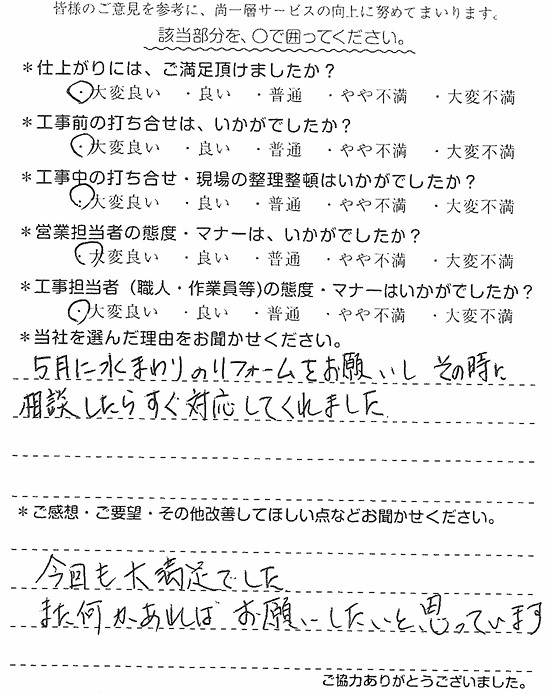 皆様のご意見を参考に、尚一層サービスの向上に努めてまいります。
該当部分を、○で囲ってください。
＊仕上がりには、ご満足頂けましたか？
・大変良い ・良い ・普通 ・やや不満 ・大変不満
＊工事前の打ち合せは、いかがでしたか？
・大変良い ・良い ・普通 ・やや不満 ・大変不満
＊工事中の打ち合せ・現場の整理整頓はいかがでしたか？
・大変良い ・良い ・普通 ・やや不満 ・大変不満
＊営業担当者の態度・マナーは、いかがでしたか？
・大変良い ・良い ・普通 ・やや不満 ・大変不満
＊工事担当者（職人・作業員等)の態度・マナーはいかがでしたか？
・大変良い ・良い ・普通 ・やや不満 ・大変不満
＊当社を選んだ理由をお聞かせください。
5月に水まわりのリフォームをお願いし その時に
相談したらすぐ対応してくれました
＊ご感想・ご要望・その他改善してほしい点などお聞かせください。
今回も大満足でした
また何かあれば お願いしたいと思っています
ご協力ありがとうございました。